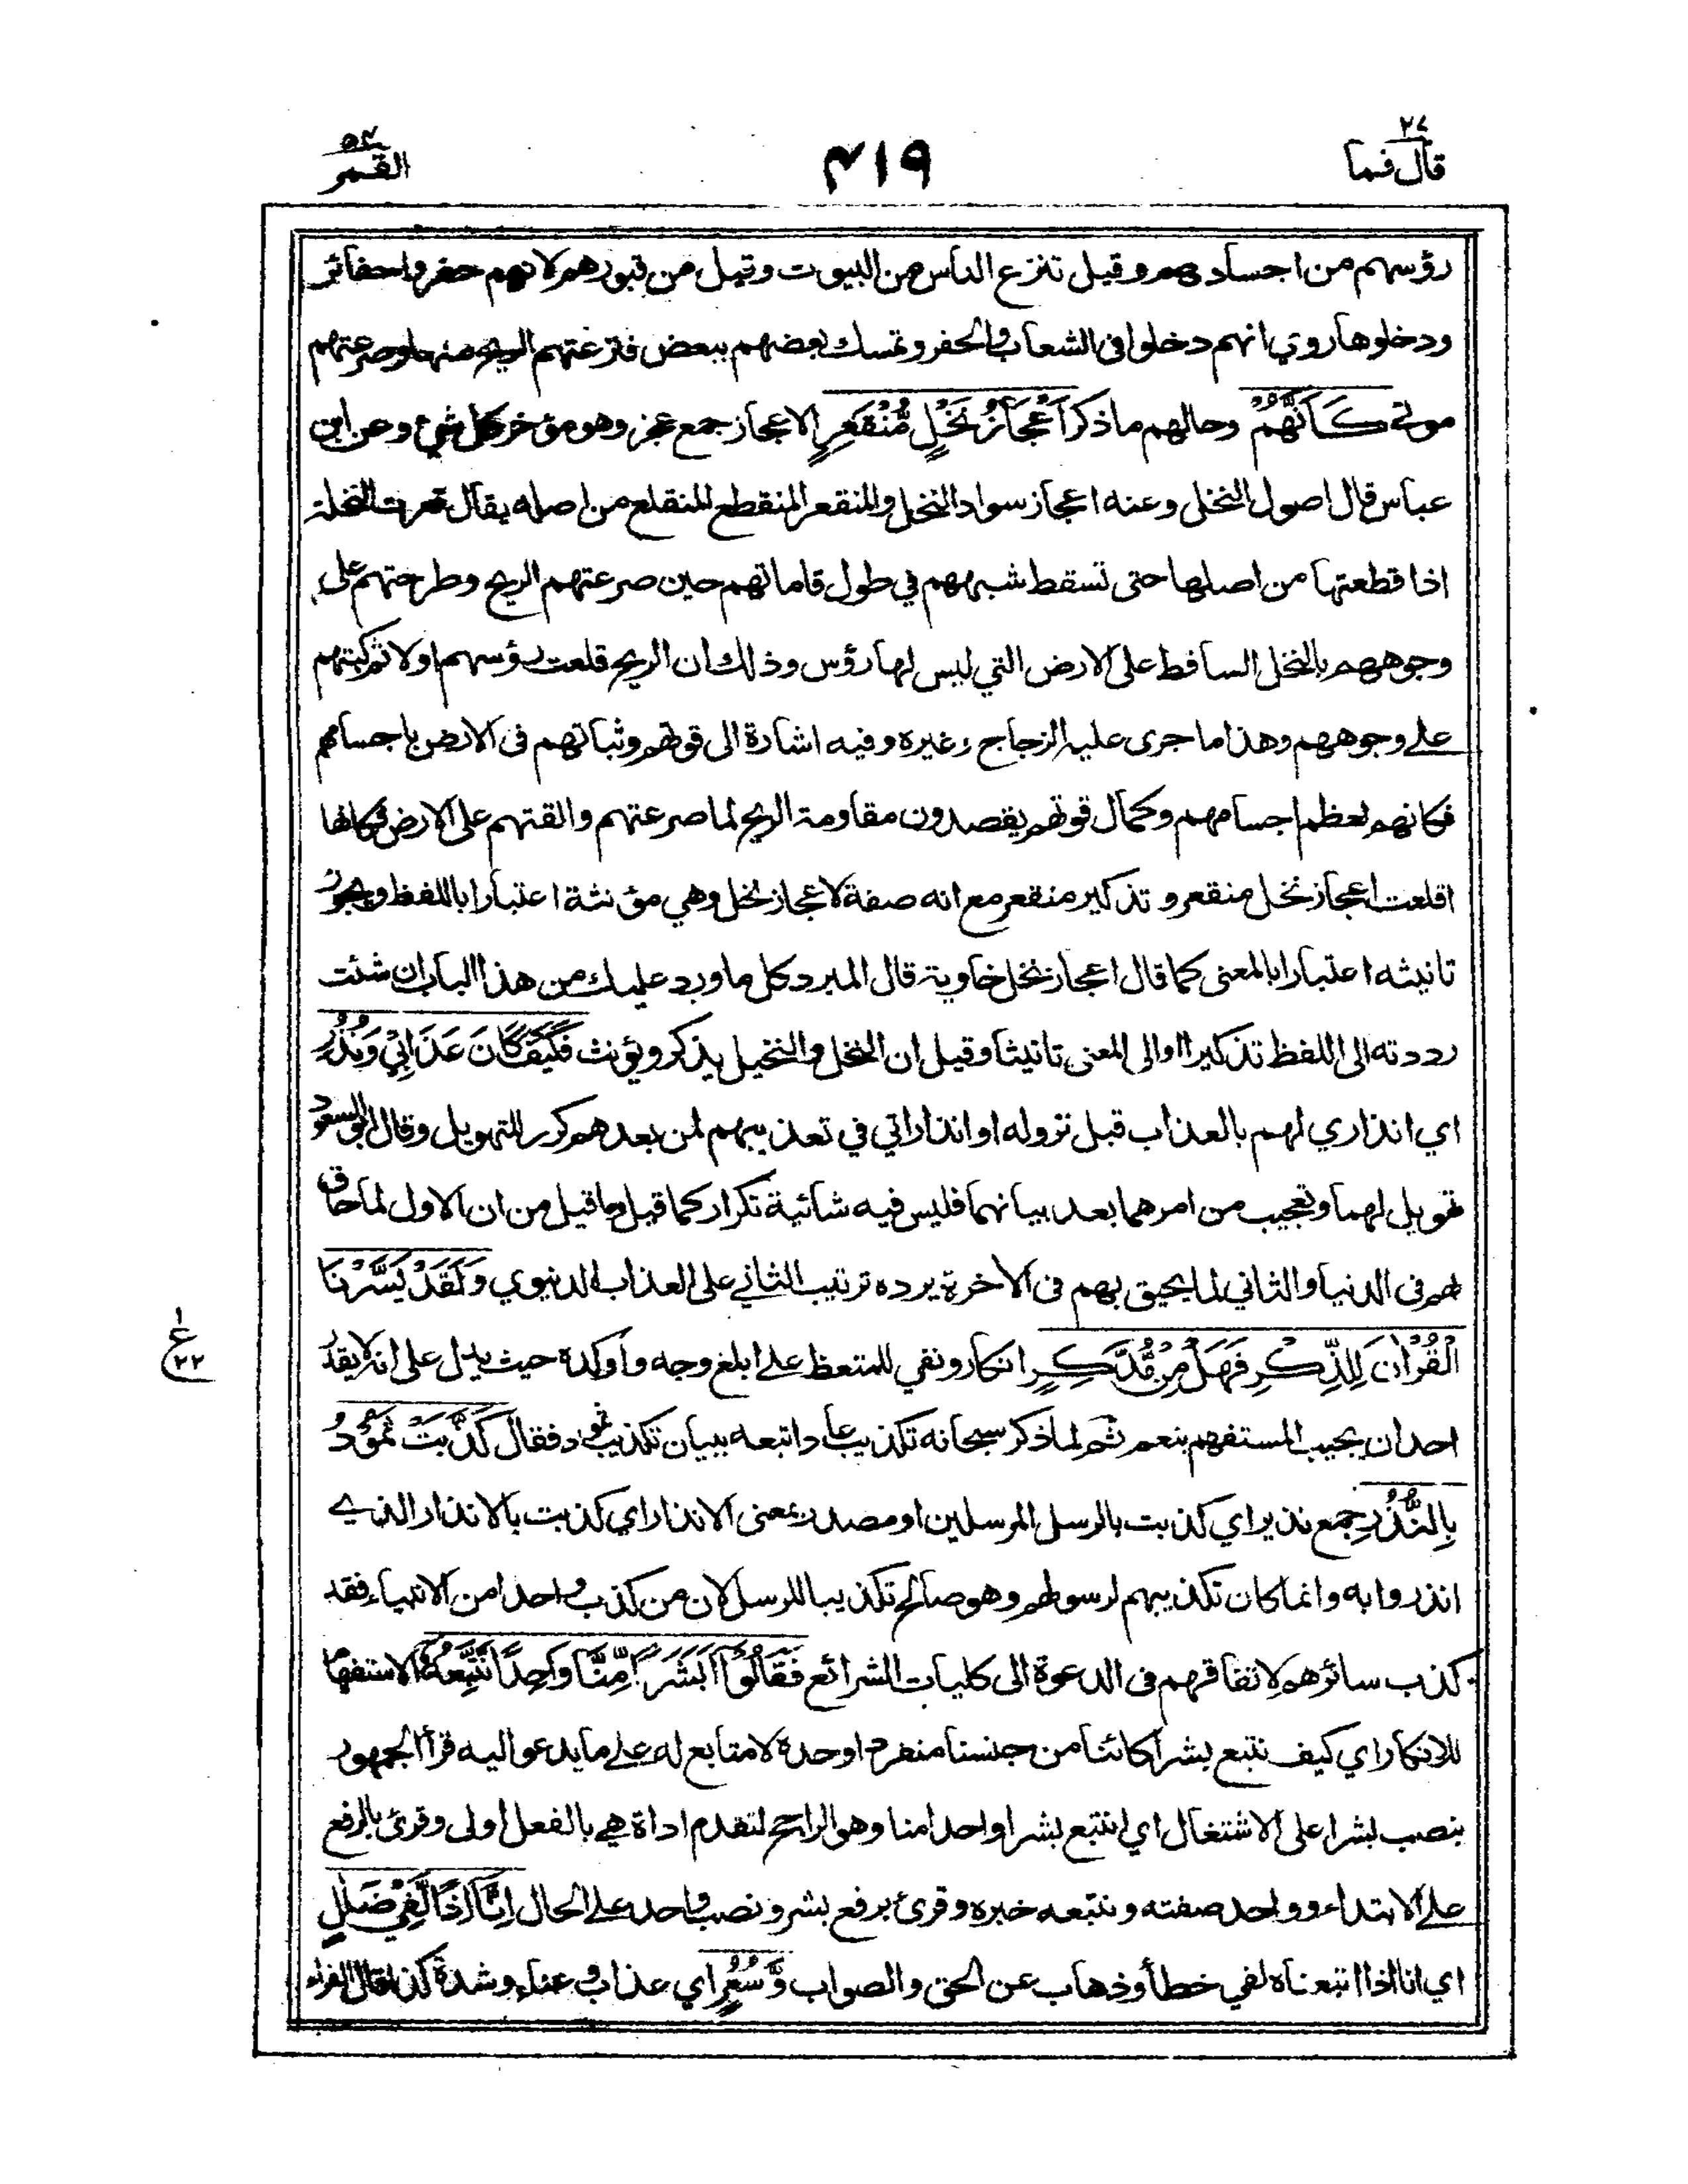 ٢٧
قال فما
٤١٩
٥٤
القمر
رؤسهم من اجسادهم وقيل تنزع الناس من البيوت وقيل من قبورهم لانهم حفروا حفائر
ودخلوها روي انهم دخلوا فى الشعاب والحفر وتمسك بعضهم ببعض فنزعتهم الريح منها وصرعتهم
موتى كَأَنَّهُمْ وحالهم ما ذكر أَعْجَازُ نَخْلٍ مُّنْقَعِرٍ الاعجاز جمع عجز وهو مؤخر كل شئ وعن ابن
عباس قال اصول النخل وعنه اعجاز سواد النخل والمنقعر المنقطع المنقلع من اصله يقال قعرت النخلة
اذا قطعتها من اصلها حتى تسقط شبههم في طول قاماتهم حين صرعتهم الريح وطرحتهم على
وجوههم بالنخل الساقط على الارض التي ليس لها رؤس وذلك ان الريح قلعت رؤسهم اولا ثم كبتهم
على وجوههم وهذا ما جرى عليه الزجاج وغيره وفيه اشارة الى قوتهم وثباتهم فى الارض باجسامهم
فكانهم لعظم اجسامهم وكمال قوتهم يقصدون مقاومة الريح لما صرعتهم والقتهم على الارض فكانها
اقلعت اعجاز نخل منقعر وتذكير منقعر مع انه صفة لاعجاز نخل وهي مؤنثة اعتبارا باللفظ ويجوز
تانيثه اعتبارا بالمعنى كما قال اعجاز نخل خاوية قال المبرد كل ما ورد عليك من هذا الباب ان شئت
رددته الى اللفظ تذكيرا او الى المعنى تانيثا وقيل ان النخل والنخيل يذكر ويؤنث فَكَيْفَ كَانَ عَذَابِيْ وَنُذُرِ
اي انذاري لهم بالعذاب قبل نزوله او انذاراتي في تعذيبهم لمن بعدهم كرر للتهويل وقال ابو السعود
تهويل لهما وتعجيب من امرهما بعد بيانهما فليس فيه شائبة تكرار كما قيل وما قيل من ان الاول لما حاق
بهم فى الدنيا والثاني لما يحيق بهم فى الاخرة يرده ترتيب الثاني على العذاب الدنيوي وَلَقَدْ يَسَّرْنَا
الْقُرْاٰنَ لِلذِّكْرِ فَهَلْ مِنْ مُّدَّكِرٍ انكار ونفي للمتعظ على ابلغ وجه وأوكده حيث يدل على انه لا يقدر
احد ان يجيب المستفهم بنعم ثم لما ذكر سبحانه تكذيب عاد اتبعه ببيان تكذيب ثمود فقال كَذَّبَتْ ثَمُوْدُ
بِالنُّذُرِ جمع نذير اي كذبت بالرسل المرسلين او مصدر بمعنى الانذار اي كذبت بالانذار الذي
انذروا به وانما كان تكذيبهم لرسولهم وهو صالح تكذيبا للرسل لان من كذب واحدا من الانبياء فقد
كذب سائرهم لاتفاقهم فى الدعوة الى كليات الشرائع فَقَالُوْٓا اَبَشَرًا مِّنَّا وَاحِدًا نَّتَّبِعُهٗ الاستفهام
للانكار اي كيف نتبع بشرا كائنا من جنسنا منفردا وحده لا متابع له على ما يدعو اليه قرأ الجمهور
بنصب بشرا على الاشتغال اي انتبع بشرا واحدا منا وهو الراجح لتقدم اداة هي بالفعل اولى وقرئ بالرفع
على الابتداء وواحد صفته ونتبعه خبره وقرئ برفع بشر ونصب واحد على الحال اِنَّآ اِذًا لَّفِيْ ضَلٰلٍ
اي انا اذا اتبعناه لفي خطأ وذهاب عن الحق والصواب وَّسُعُرٍ اي عذاب وعناء وشدة كذا قال الفراء
١
ع
٢٢